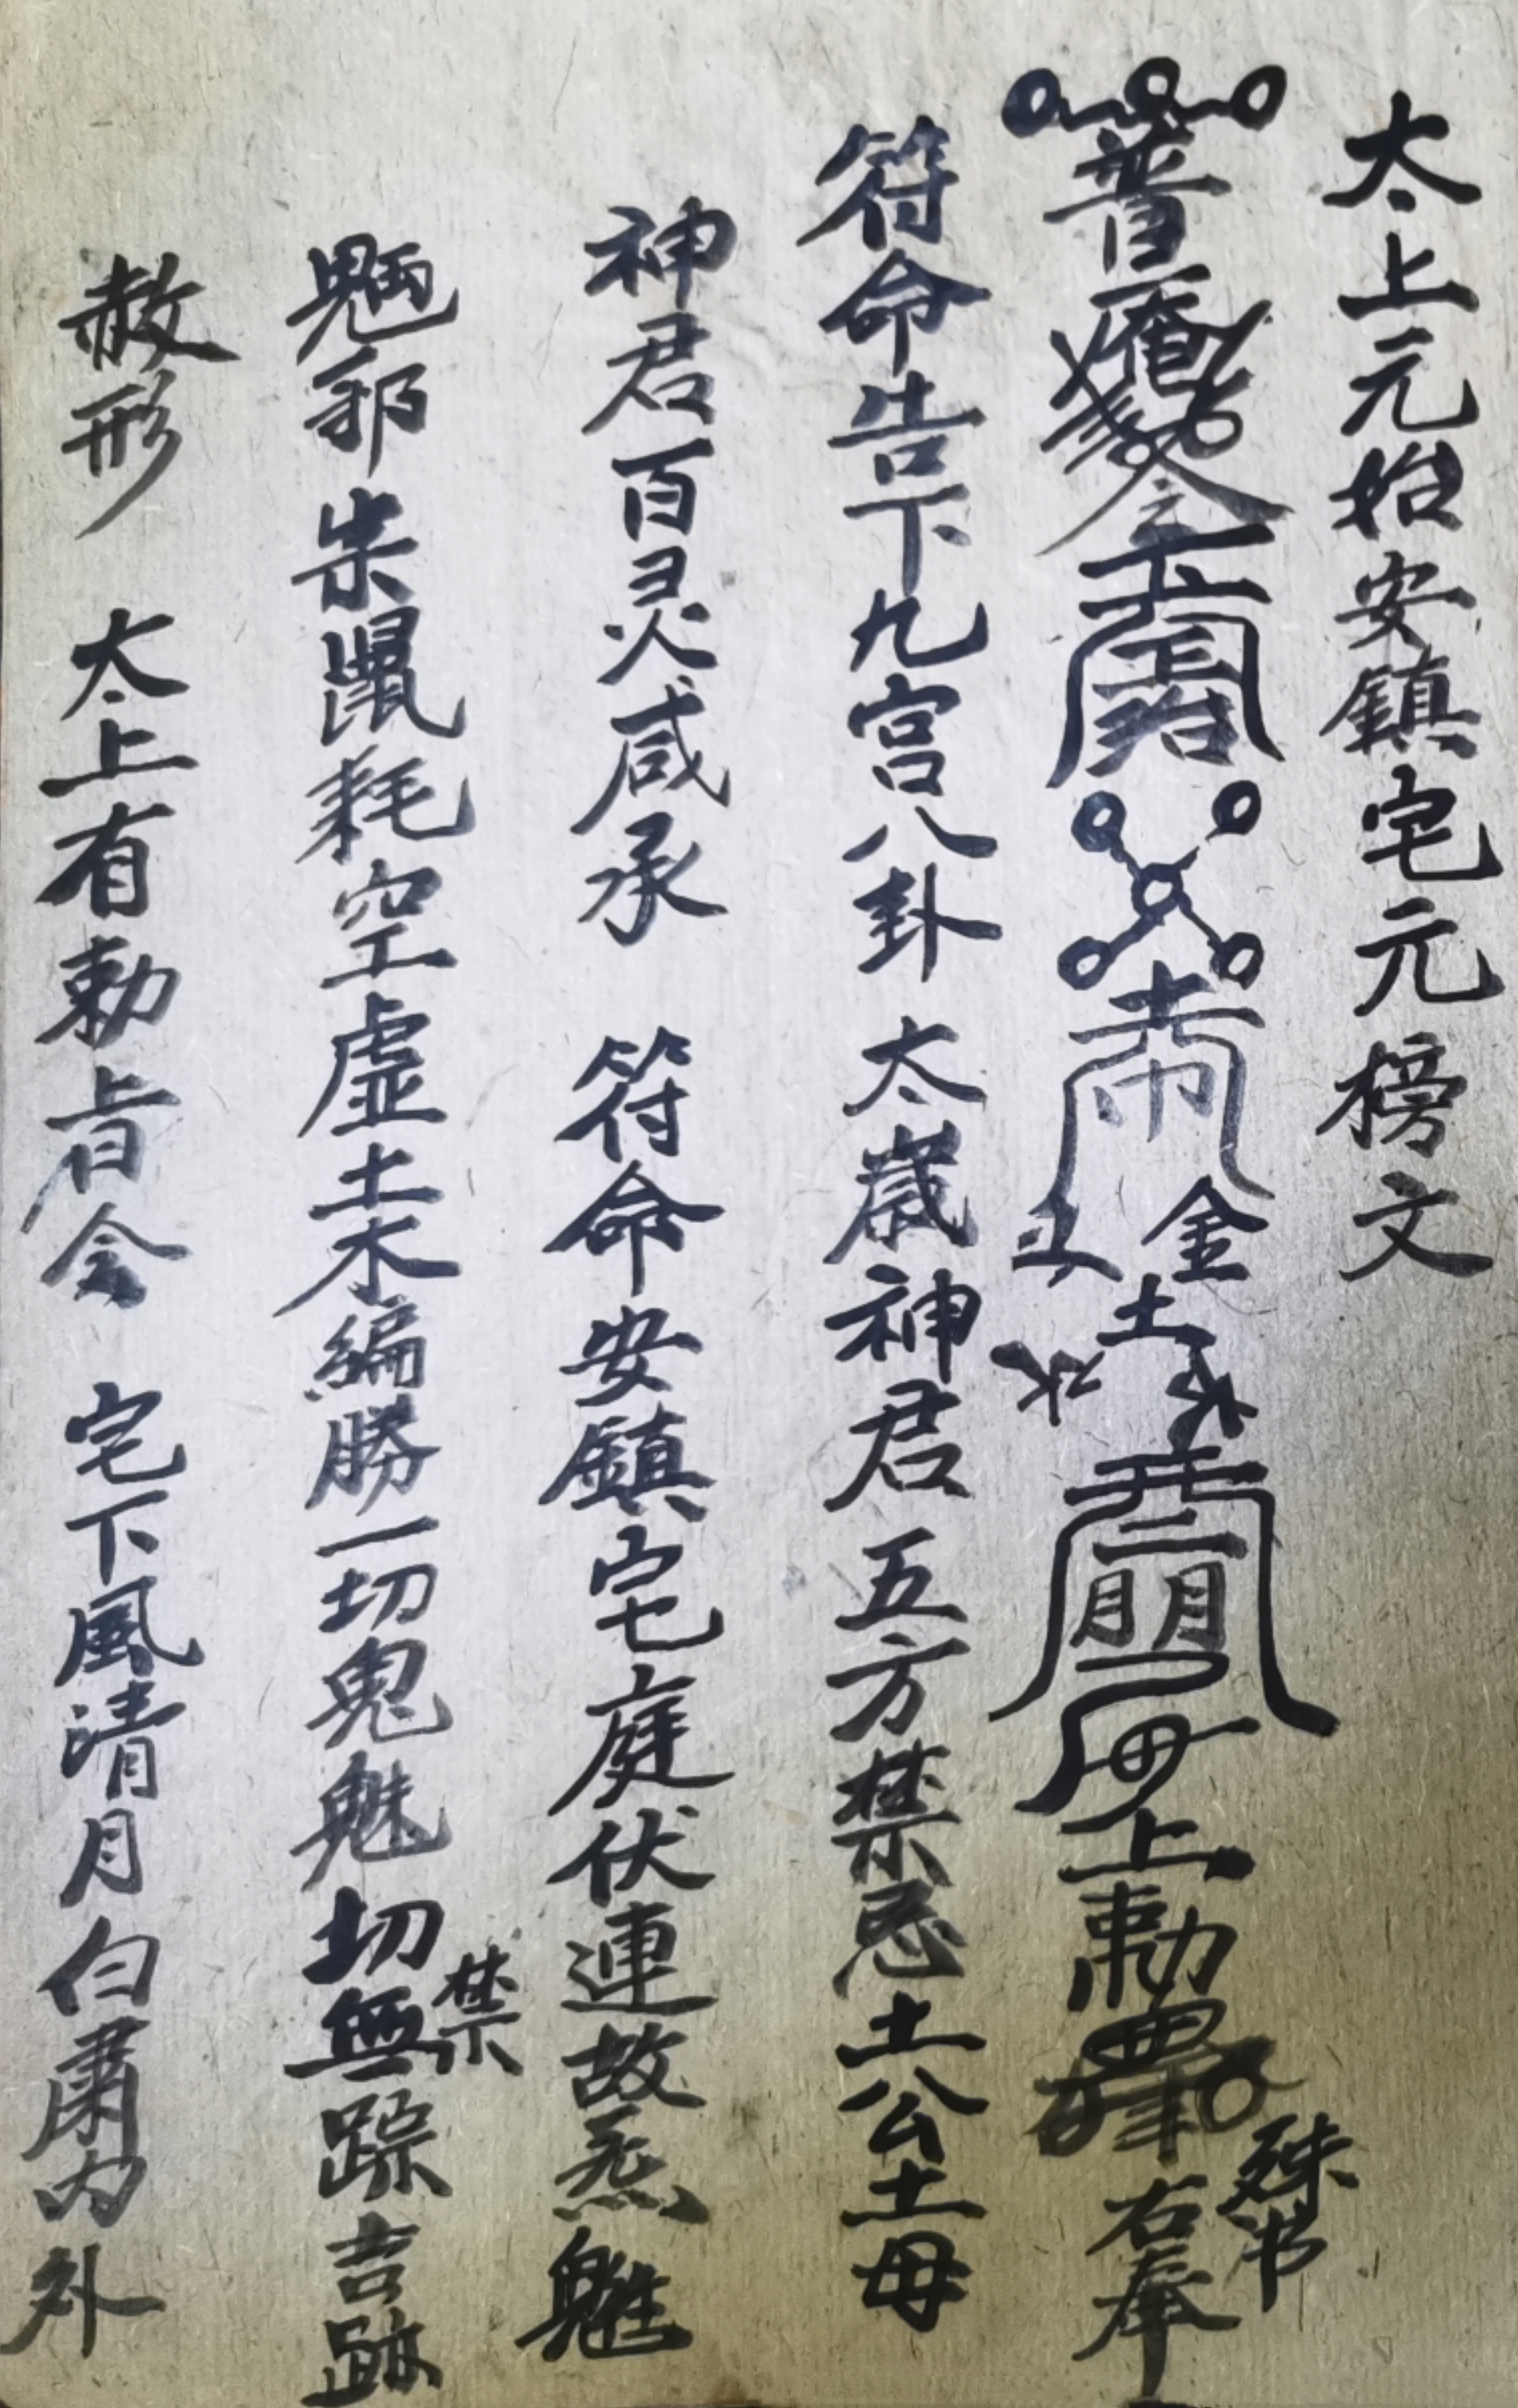 太上元始安鎮宅元榜文
普庵 金 土 水 上勅 右奉
殊书
符命告下九宫八卦太歳神君五方禁忌土公土母
神君百灵咸承 符命安鎮宅庭伏連故炁魋
魎邪 耗空虚土木編勝一切鬼魅切無踪吉跡
禁
赦形 太上有勅旨令 宅下風清月白肅内外